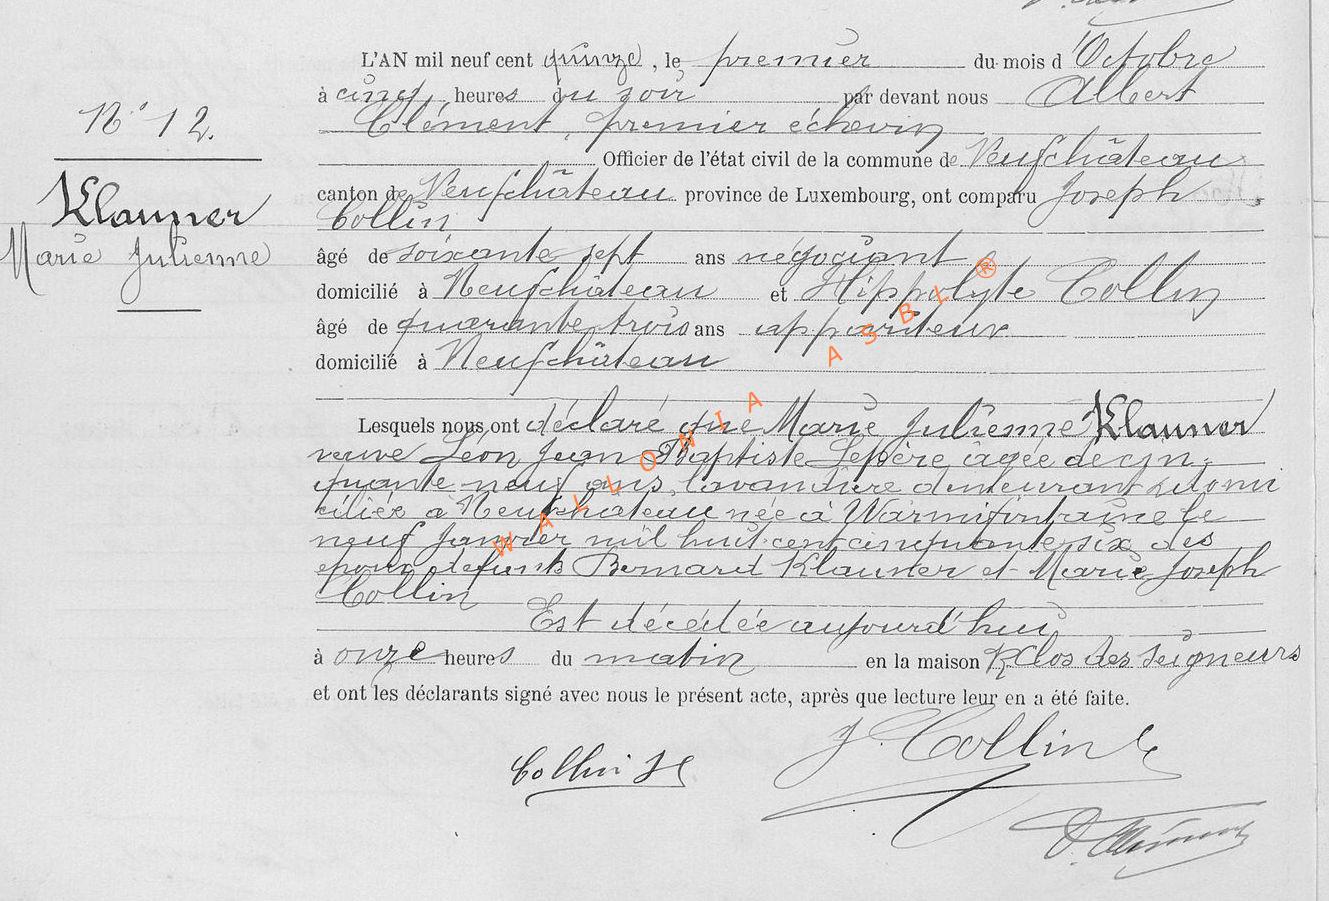 L'AN mil neuf cent quinze, le premier du mois d'Octobre
à cinq heures du soir par devant nous Albert
Clément, premier échevin
Officier de l'état civil de la commune de Neufchâteau
canton de Neufchâteau province de Luxembourg, ont comparu Joseph
Collin
âgé de soixante sept ans négociant
domicilié à Neufchâteau et Hippolyte Collin
âgé de quarante trois ans appariteur
domicilié à Neufchâteau
N° 12.
Klauner
Marie Julienne
Lesquels nous ont déclaré que Marie Julienne Klauner
veuve Léon Jean Baptiste Lepère, agée de cin-
quante neuf ans, lavandière demeurant & domi
ciliée à Neufchâteau née à Warmifontaine le
neuf Janvier mil huit cent cinquante six des
époux défunts Bernard Klauner et Marie Joseph
Collin
Est décédée aujourd'hui
à onze heures du matin en la maison Clos des Seigneurs
et ont les déclarants signé avec nous le présent acte, après que lecture leur en a été faite.
J. Collin
Collin H
A. Clément
WALLONIA ASBL ®